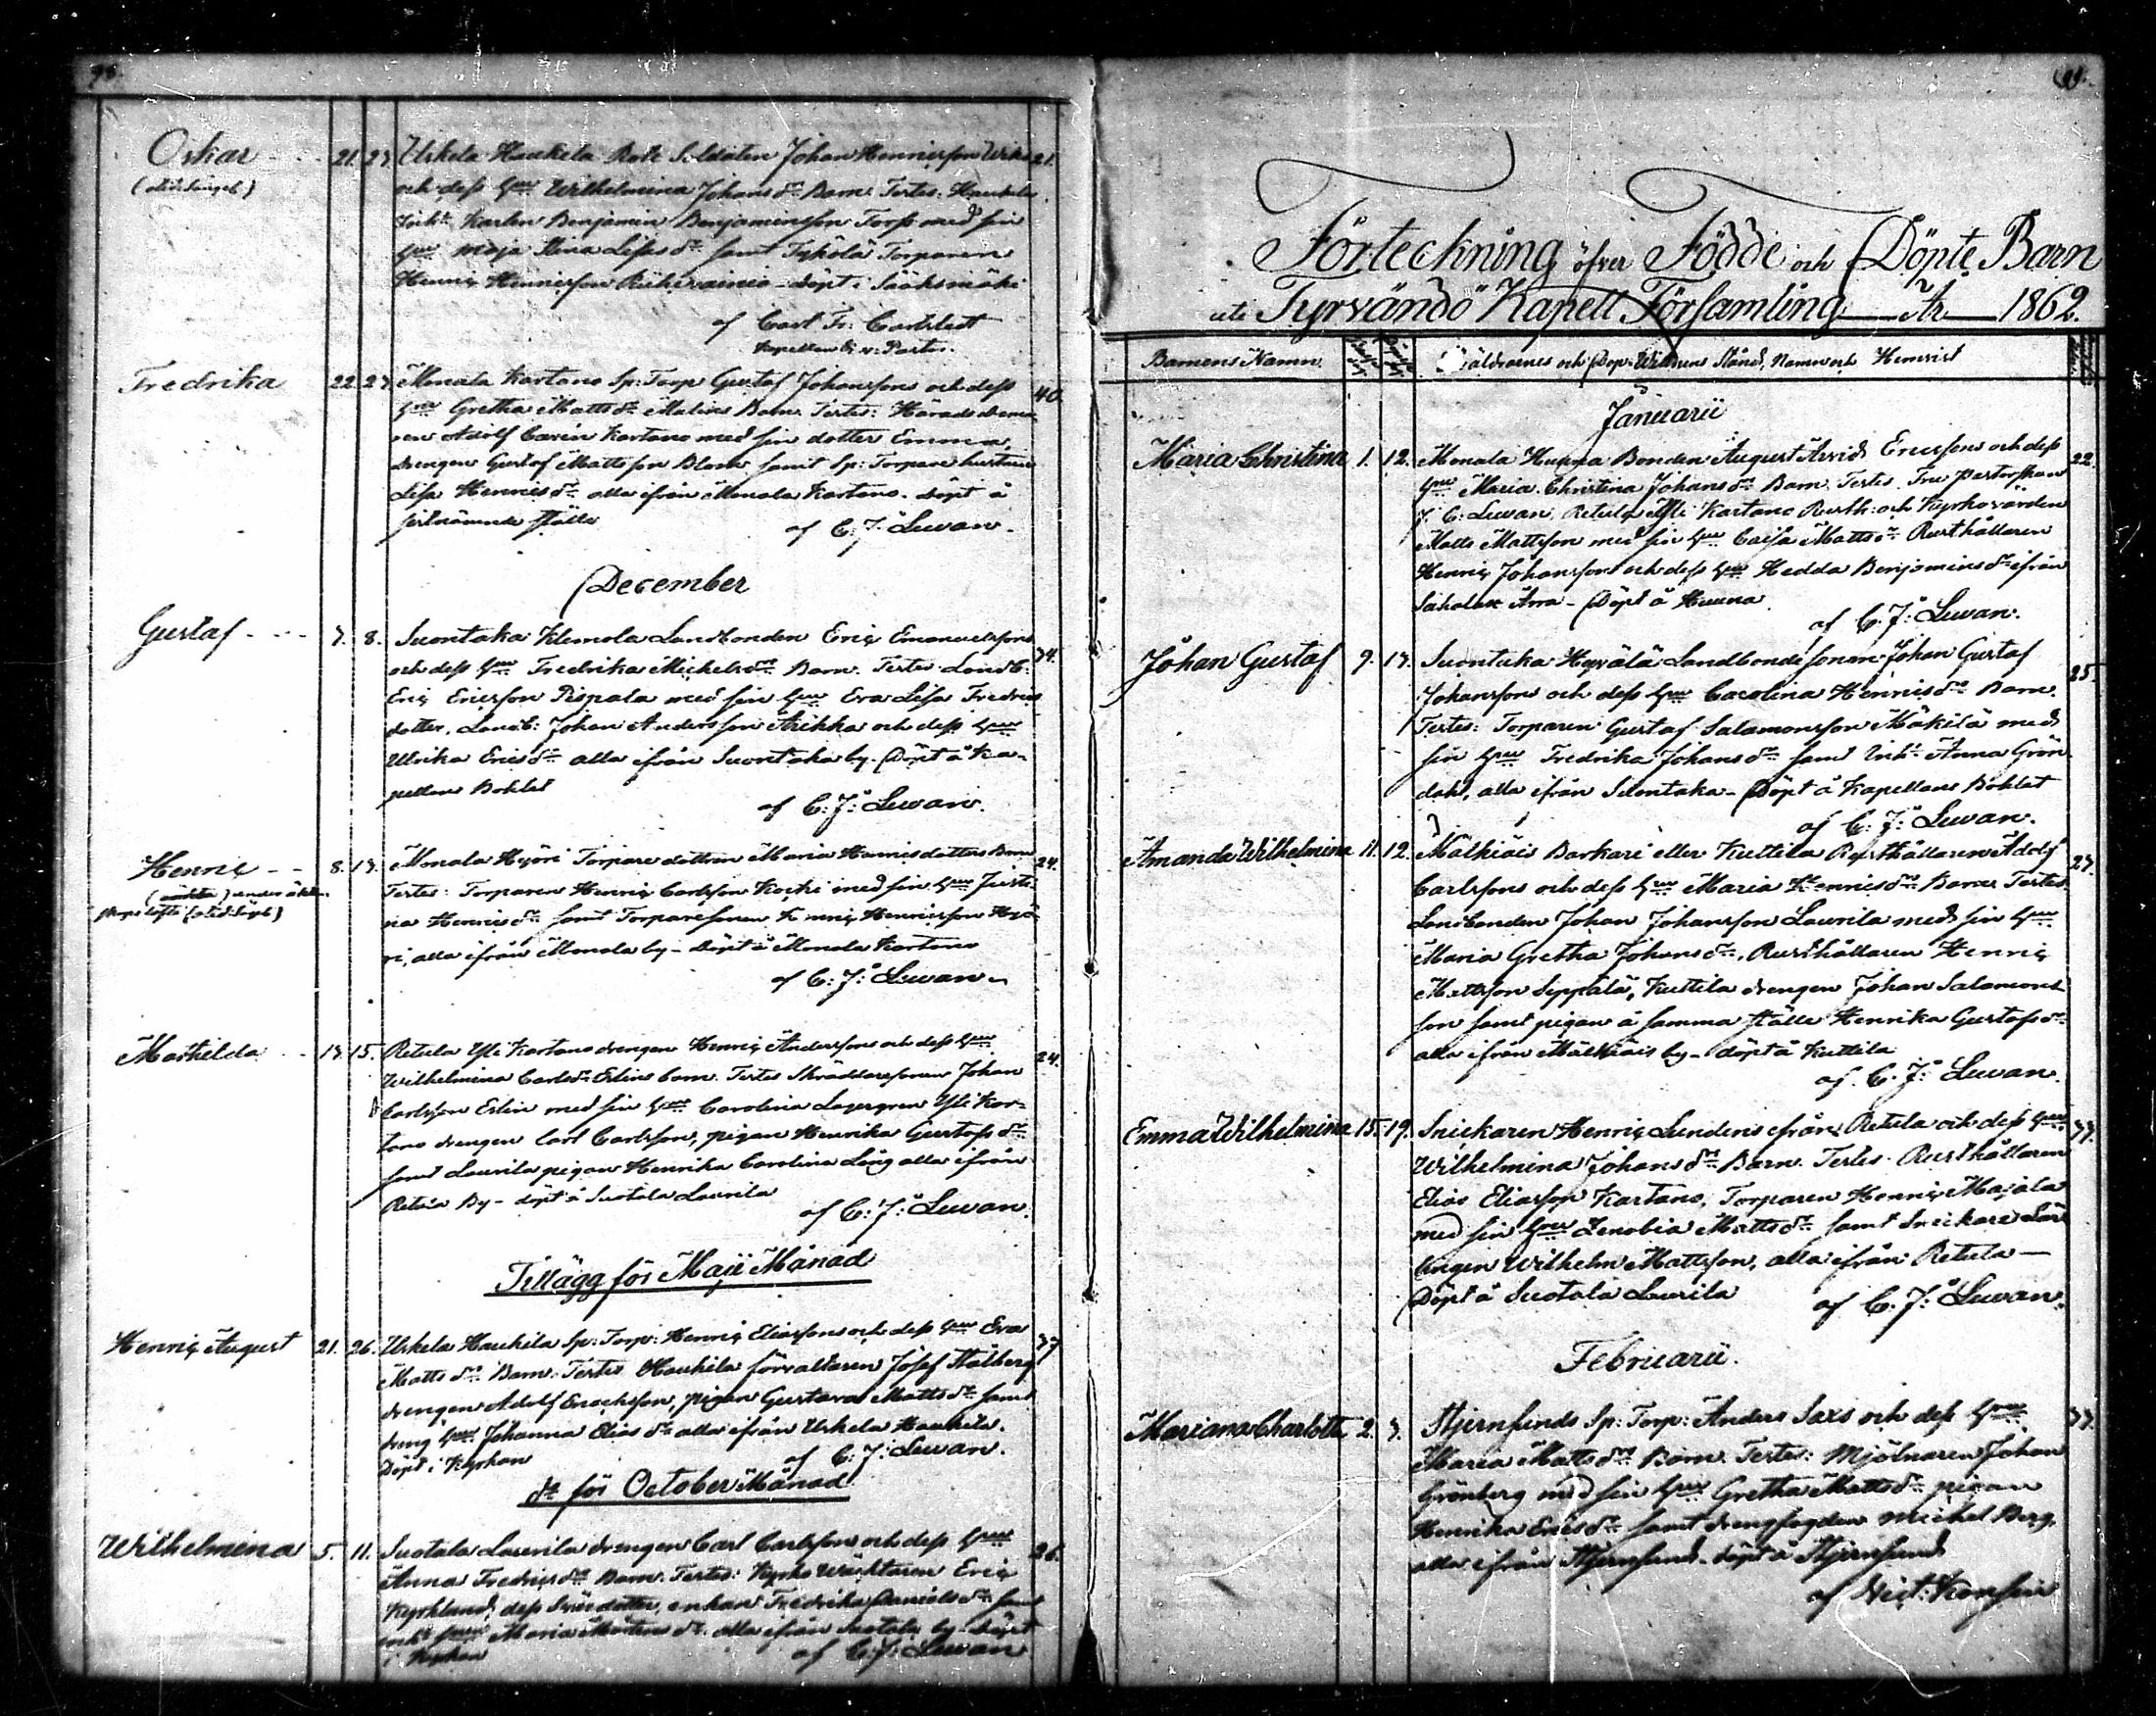 98.
Oskar - - 21. 27. Urkela Haukela Rote Soldaten Johan Hennricsson Wirka 21.
och dess Hru Wilhelmina Johans dr Barn. Testes. Haukela
Inh. Karlen Benjamin Benjaminsson Torss med sin
Hru Maja Stina Lisas dr samt Tykölä Torparen
Henric Henricsson Riihivainio - döpt i Sääksmäki
af Carl Fr: Carlstedt
Kapellan & v: Pastor.
Fredrika 22. 27. Monala Kartano Sp: Torp Gustaf Johanssons och dess 40.
Hru Gretha Matts dr Malins Barn. Testes: Häradsdoma-
ren Adolf Carin Kartano med sin dotter Emma,
drengen Gustaf Mattsson Blom samt Sp: Torpare hustrun
Lisa Henrics dr alla ifrån Monala Kartano. döpt å
sistnämnde ställe af C: J: Lewan.
December
Gustaf - - - 7. 8. Suontaka Klemola Landbonden Eric Emanuelssons 34.
och dess Hru Fredrika Michels dr Barn. Testes Landb:
Eric Ericsson Pispala med sin Hru Eva Lisa Fredrics
dotter, Landb: Johan Andersson Arikka och dess Hru
Ulrika Erics dr alla ifrån Suontaka by. Döpt å Ka-
pellans Bohlet
af C: J: Lewan.
Henric - - 8. 13. Monala Hyöri Torparedottren Maria Henricsdotters Barn 24.
Testes: Torparen Henric Carlsson Koski med sin Hru Justi-
na Henrics dr samt Torparesonen Henric Henricsson Hyö-
ri, alla ifrån Monala by - Döpt å Monala Kartano
af C: J: Lewan
Mathilda - - 13. 15. Retula Yli Kartano drengen Henric Anderssons och dess Hru 24.
Wilhelmina Carls dr Eslins barn. Testes Skräddaresonen Johan
Carlsson Eslin med sin Hru Carolina Lagergren Yli Kar-
tano drengen Carl Carlsson, pigan Henrika Gustafs dr
samt Laurila pigan Henrika Carolina Lång alla ifrån
Retula By - döpt å Suotala Laurila
af C: J: Lewan.
Tillägg för Maji Månad
Henric August 21. 26. Urkela Haukila Sp: Torp: Henric Eliassons och dess Hru Eva 37
Matts dr Barn. Testes Haukila förvaltaren Josef Stålberg
drengen Adolf Enochsson, pigan Gustava Matts dr samt
dreng Hru Johanna Elias dr alla ifrån Urkela Haukila.
Döpt i Kyrkan af C: J: Lewan.
do för October Månad
Wilhelmina 5. 11. Suotala Laurila drengen Carl Carlssons och dess Hru 26.
Anna Fredrics dr Barn. Testes: Kyrko Wäktaren Eric
Kyrklund, dess Svärdotter, enkan Fredrika Daniels dr samt
Maria Mårtens dr alla ifrån Suotala by - döpt
i Kyrkan af C: J: Lewan
99.
Förteckning öfver Födde och Döpte Barn
uti Tyrvändö Kapell Församling År 1862.
Barnens Namn. Föräldrarnes och Dop-Wittnens Stånd, Namn och Hemvist
Januarii
Maria Christina 1. 12. Monala Huuna Bonden August Arvid Ericssons och dess 22.
Hru Maria Christina Johans dr Barn. Testes. Fru Pastorskan
J. C: Lewan, Retula Yli Kartano Rusth: och Kyrkovärden
Matts Mattsson med sin Hru Caisa Matts dr Rusthållaren
Henric Johansson och dess Hru Hedda Benjamins dr ifrån
Saholax Arra - Döpt å Huuna.
af C: J: Lewan.
Johan Gustaf 9. 13. Suontaka Hyvälä Landbondesonen Johan Gustaf 25.
Johanssons och dess Hru Carolina Henrics dr Barn.
Testes: Torparen Gustaf Salamonsson Mäkilä med
sin Hru Fredrika Johans dr samt Inh: Anna Grön-
dahl, alla ifrån Suontaka - Döpt å Kapellans Bohlet
af C: J: Lewan.
Amanda Wilhelmina 11. 12. Mälkiäis Barkari eller Kuttila Rusthållaren Adolf 27.
Carlssons och dess Hru Maria Henrics dr Barn. Testes
Landbonden Johan Johansson Laurila med sin Hru
Maria Gretha Johans dr, Rusthållaren Henric
Mattsson Seppälä, Kuttila drengen Johan Salamons-
son samt pigan å samma ställe Henrika Gustafs dr
alla ifrån Mälkiäis by - döpt å Kuttila
af C. J: Lewan.
Emma Wilhelmina 15. 19. Snickaren Henric Lundens ifrån Retula och dess Hru 37.
Wilhelmina Johans dr Barn. Testes Rusthållaren
Elias Eliasson Kartano, Torparen Henric Majala
med sin Hru Zenobia Matts dr samt Snickare Lär-
lingen Wilhelm Mattsson, alla ifrån Retula -
Döpt å Suotala Laurila af C. J: Lewan.
Februarii.
Mariana Charlotta 2. 3. Stjernsunds Sp: Torp: Anders Saxs och dess Hru 37.
Maria Matts dr Barn. Testes: Mjölnaren Johan
Grönberg med sin Hru Gretha Matts dr pigan
Henrika Erics dr samt drengfogden Michel Berg,
alla ifrån Stjernsund - döpt å Stjernsund
af Vict: Konsin